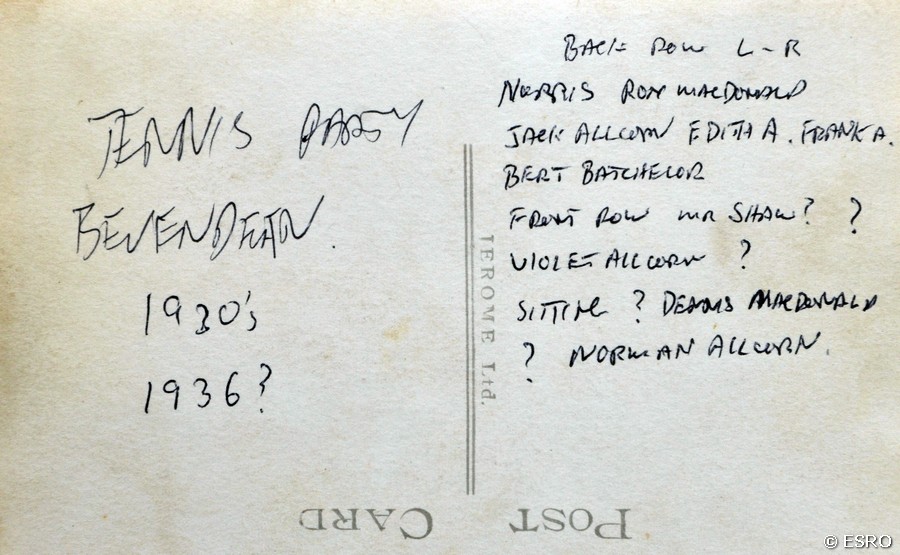 TENNIS PARTY
BEVENDEAN.
1930's
1936?
BACK ROW L-R
NORRIS RON MACDONALD
JACK ALLCORN EDITH A. FRANK A.
BERT BATCHELOR
FRONT ROW MR SHAW? ?
VIOLET ALLCORN ?
SITTING ? DENNIS MACDONALD
? NORMAN ALLCORN.
JEROME Ltd.
POST CARD
© ESRO